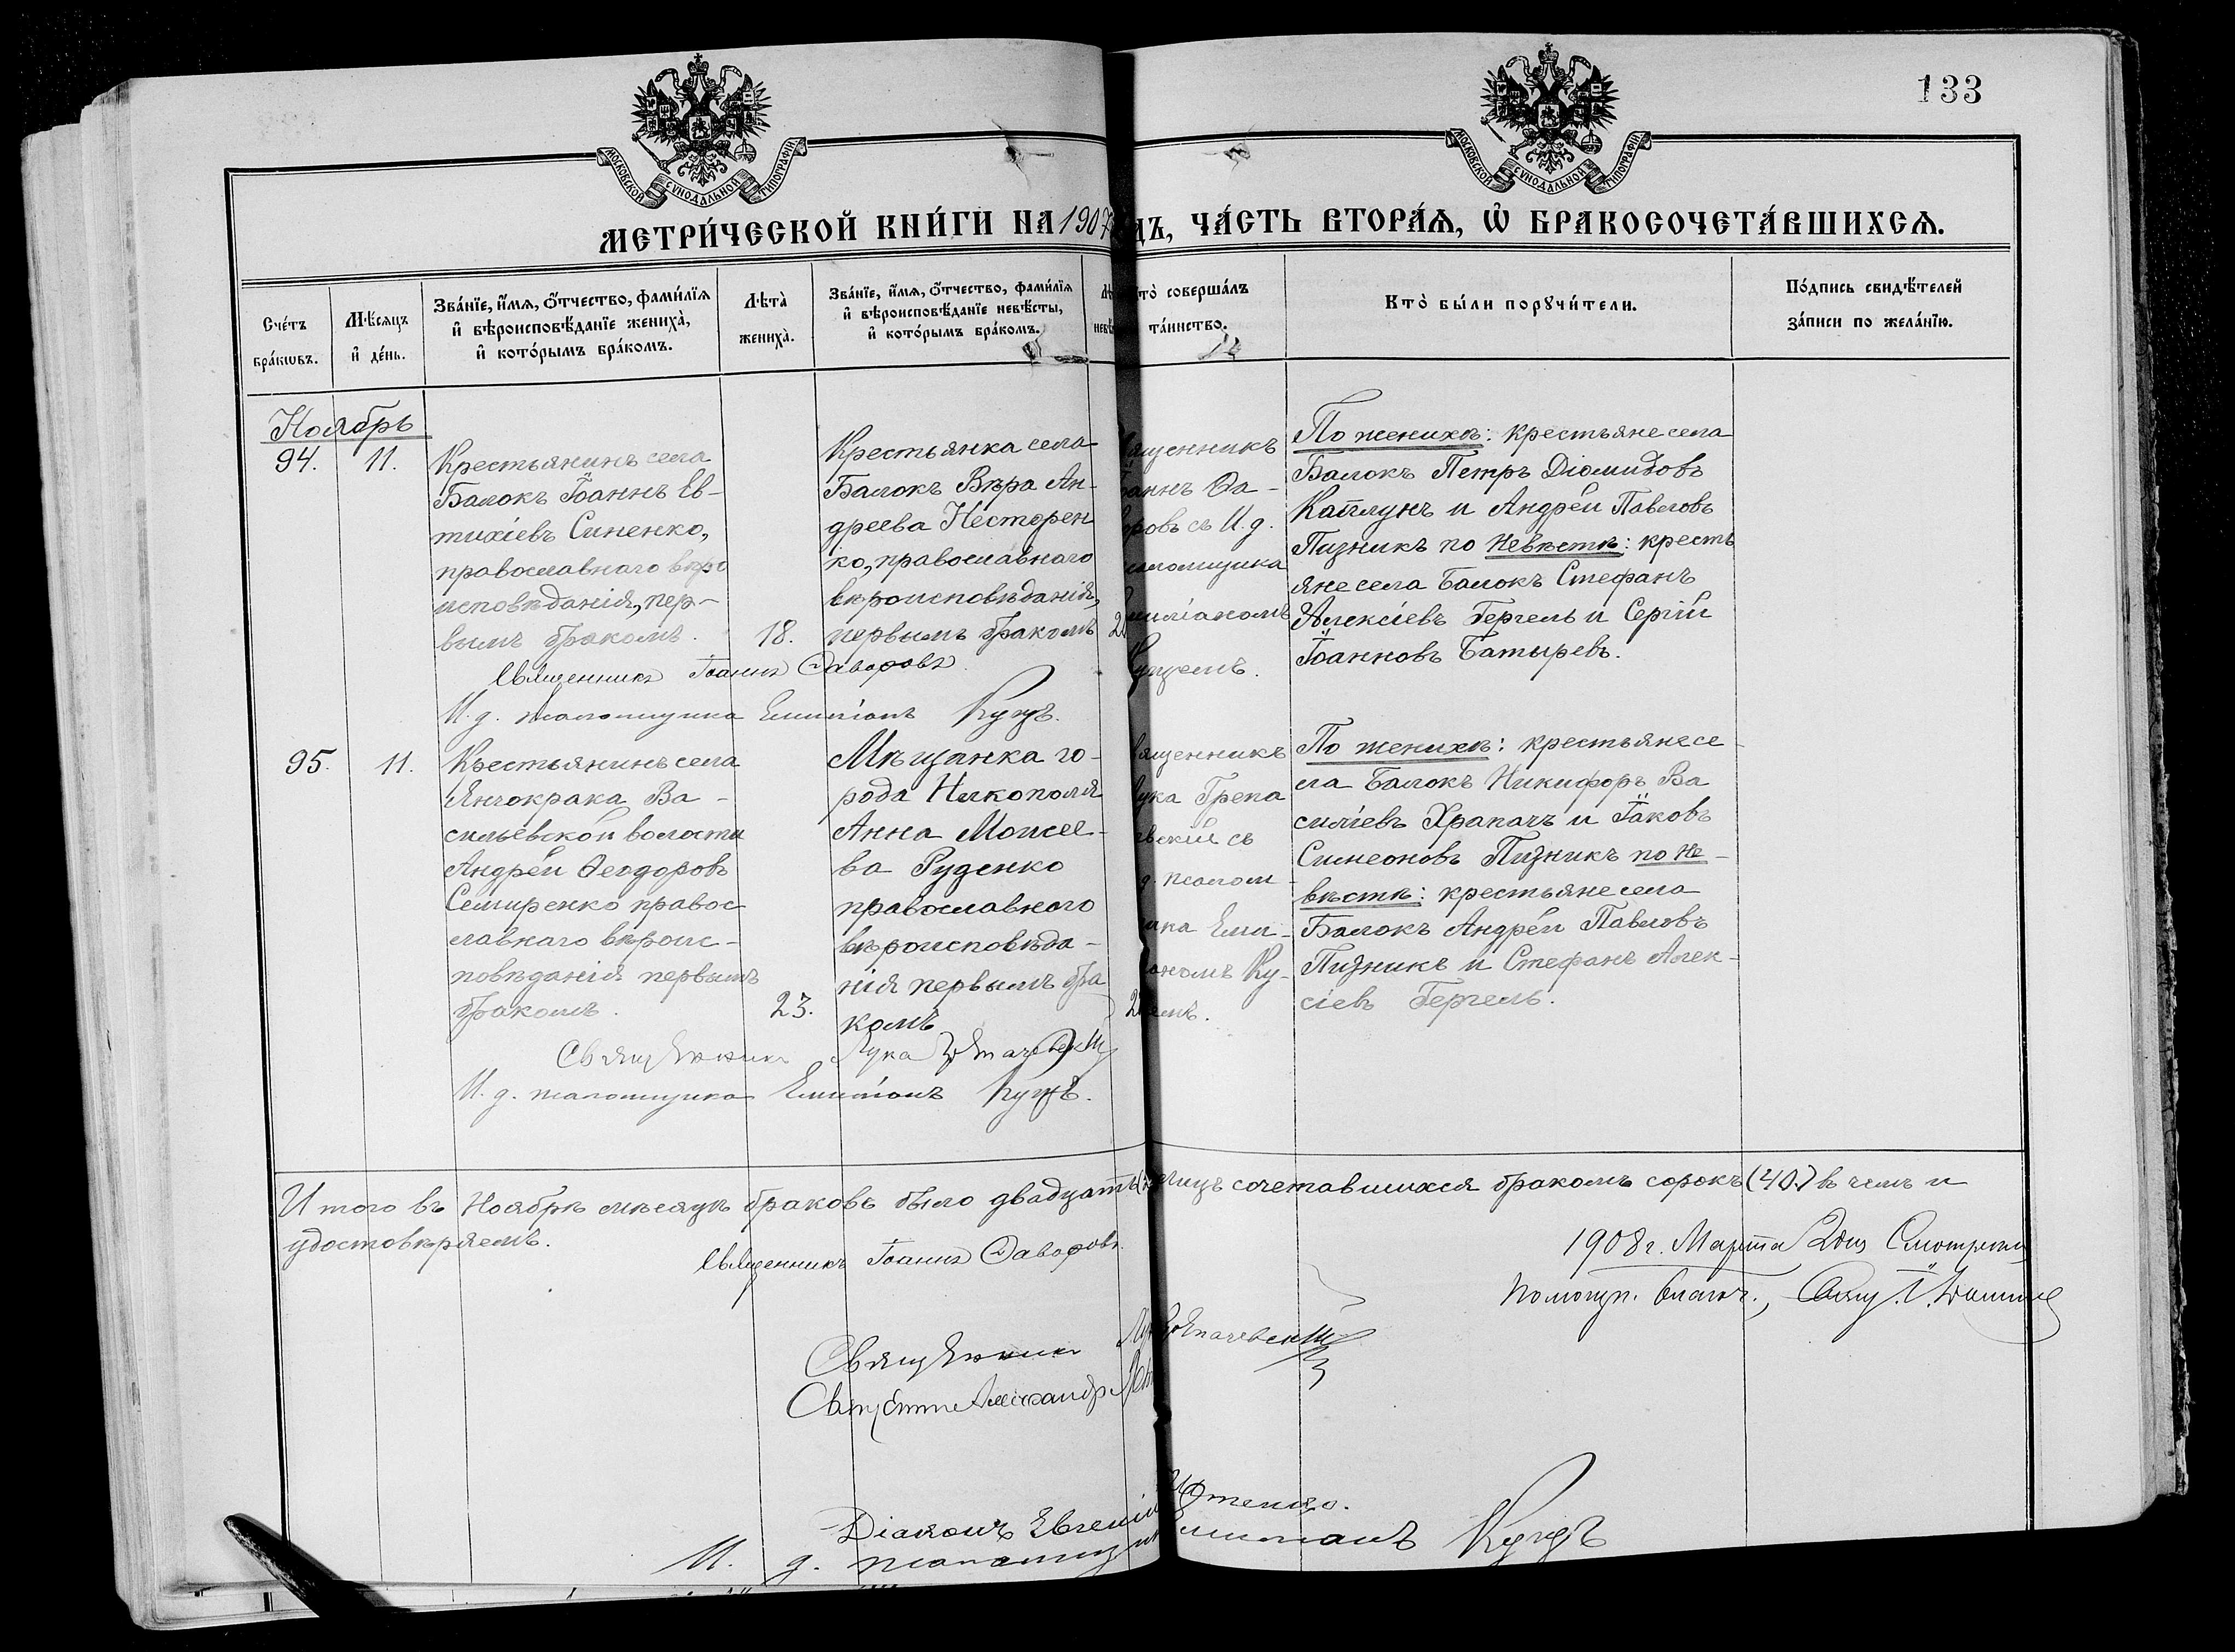 133
МОСКОВСКОЙ СѴНОДАЛЬНОЙ ТИПОГРАФІИ
МОСКОВСКОЙ СѴНОДАЛЬНОЙ ТИПОГРАФІИ
МЕТРИ́ЧЕСКОЙ КНИ́ГИ НА 1907 ДЪ, ЧА́СТЬ ВТОРА́Ѧ, Ѽ БРАКОСОЧЕТА́ВШИХСѦ.
Сче́тъ
бра́кѡвъ.
Мѣ́сѧцъ
и҆ де́нь.
Зва́нїе, и҆́мѧ, ѻ҆́тчество, фами́лїѧ
и҆ вѣроисповѣ́данїе жениха̀,
и҆ кото́рымъ бра́комъ.
Лѣта̀
жениха̀.
Зва́нїе, и҆́мѧ, ѻ҆́тчество, фами́лїѧ
и҆ вѣроисповѣ́данїе невѣ́сты,
и҆ кото́рымъ бра́комъ.
Лѣ
невѣ́
то̀ соверша́лъ
та́инство.
Кто̀ бы́ли порꙋчи́тели.
По́дпись свидѣ́телей
за́писи по жела́нїю.
Ноябрь
94.
11.
Крестьянинъ села
Балокъ Іоаннъ Ев-
тихіевъ Синенко,
православнаго вѣро
исповѣданія, пер-
вымъ бракомъ.
18.
Крестьянка села
Балокъ Вѣра Ан-
дреева Нестерен
ко, православнаго
вѣроисповѣданія,
первымъ бракомъ
2
вященникъ
оаннъ Ѳа-
оровъ съ И. д.
саломщика
миліаномъ
уцемъ.
По женихѣ: крестьяне села
Балокъ Петръ Діомидовъ
Каплунъ и Андрей Павловъ
Пизникъ по Невѣстѣ: кресть
яне села Балокъ Стефанъ
Алексіевъ Гергель и Сергій
Іоанновъ Батыревъ.
Священникъ Іоаннъ
И. д. псаломщика Емиліанъ Куцъ.
95.
11.
Крестьянинъ села
Янчокрака Ва-
сильевской волости
Андрей Ѳеодоровъ
Семиренко правос
лавнаго вѣроис-
повѣданія первымъ
бракомъ.
23.
Мѣщанка го-
рода Никополя
Анна Моисее-
ва Руденко
православнаго
вѣроисповѣда-
нія первымъ бра
комъ
2
вященникъ
ука Грепа
вскій съ
д. псалом-
ика Еми-
аномъ Ку-
емъ.
По женихѣ: крестьяне се-
ла Балокъ Никифоръ Ва
силіевъ Храпачъ и Іаковъ
Симеоновъ Пизникъ по не-
вѣстѣ: крестьяне села
Балокъ Андрей Павловъ
Пизникъ и Стефанъ Алек-
сіевъ Гергель.
Священникъ Лука
И. д. псаломщика Емиліанъ Куцъ.
Итого въ Ноябрѣ мѣсяцѣ браковъ было двадцать лицъ сочетавшихся бракомъ сорокъ (40.) въ чемъ и
удостовѣряемъ.
Священникъ Іоаннъ
1908 г. Марта 2 дня Смотрѣлъ
Помощн. благоч.,
Священникъ
Священникъ Александръ
Діаконъ Евгеній
И. д. псаломщика Емиліанъ Куцъ